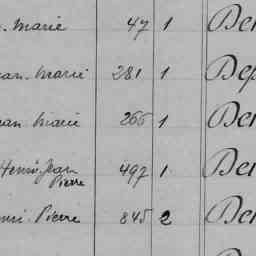 Marie 47 1 Der
Jean Marie 281 1 Dep
Jean Marie 266 1 Der
Henri Jean Pierre 497 1 Der
Henri Pierre 845 2 Der